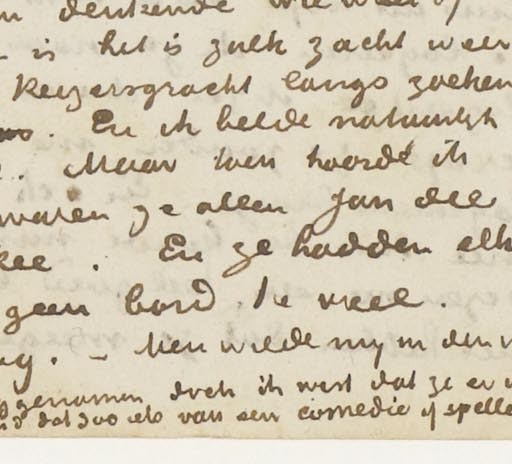 denkende wie weet of
is het is zulk zacht weer
Keizersgracht langs zoeken
. En ik belde natuurlijk
. Maar toen hoorde ik
waren ze allen Jan dee
kee . En ze hadden elk
geen bord te veel .
. – Men wilde my in den
genomen doch ik wist dat ze er
dat zoo iets van een comedie